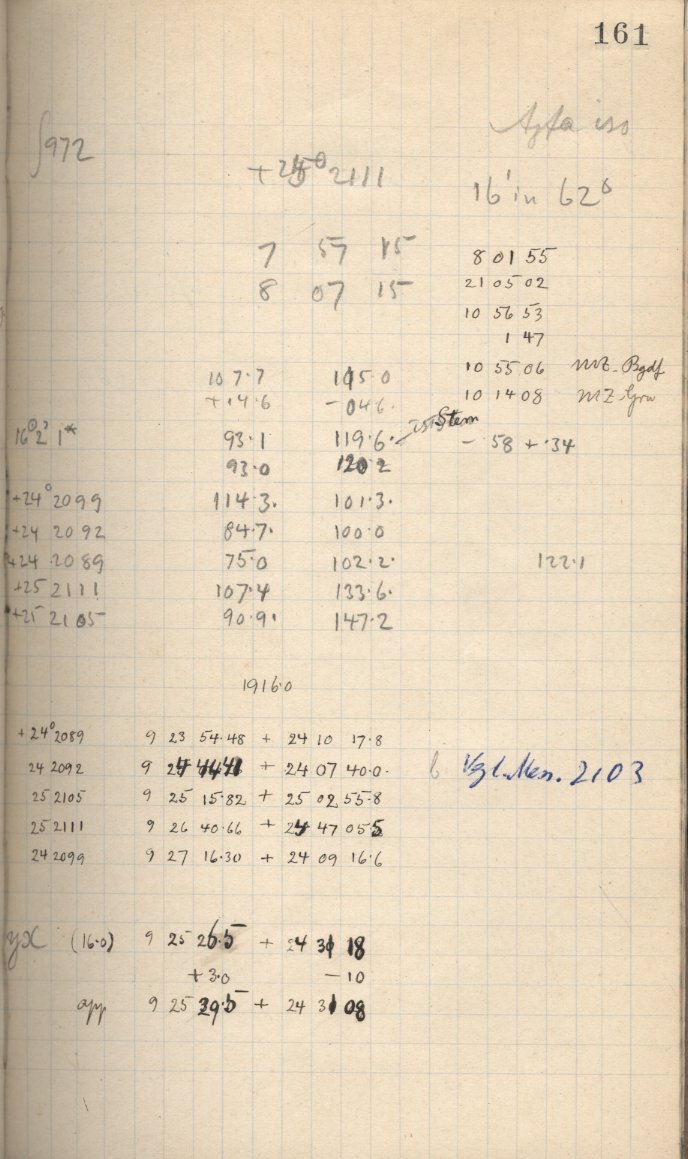 161
Agfa iso
∫972
+25° 2111
16' in 62°
7 57 15
8 07 15
8 01 55
21 05 02
10 56 53
1 47
10 55 06 MZ-Bgdf
10 14 08 MZ-Grw
107.7 105.0
+14.6 -04.6.
16 2 1* 93.1 119.6. Stern
93.0 120.2
- 58 + .34
+24° 2099 114.3. 101.3.
+24 2092 84.7. 100.0
+24 2089 75.0 102.2.
122.1
+25 2111 107.4 133.6.
+25 2105 90.9. 147.2
1916.0
+24° 2089 9 23 54.48 + 24 10 17.8
24 2092 9 24 + 24 07 40.0.
b Vgl. Men. 2103
25 2105 9 25 15.82 + 25 02 55.8
25 2111 9 26 40.66 + 24 47 05 5
24 2099 9 27 16.30 + 24 09 16.6
yx (16.0) 9 25 26.5 + 24 31 18
+3.0 -10
app 9 25 29.5 + 24 31 08